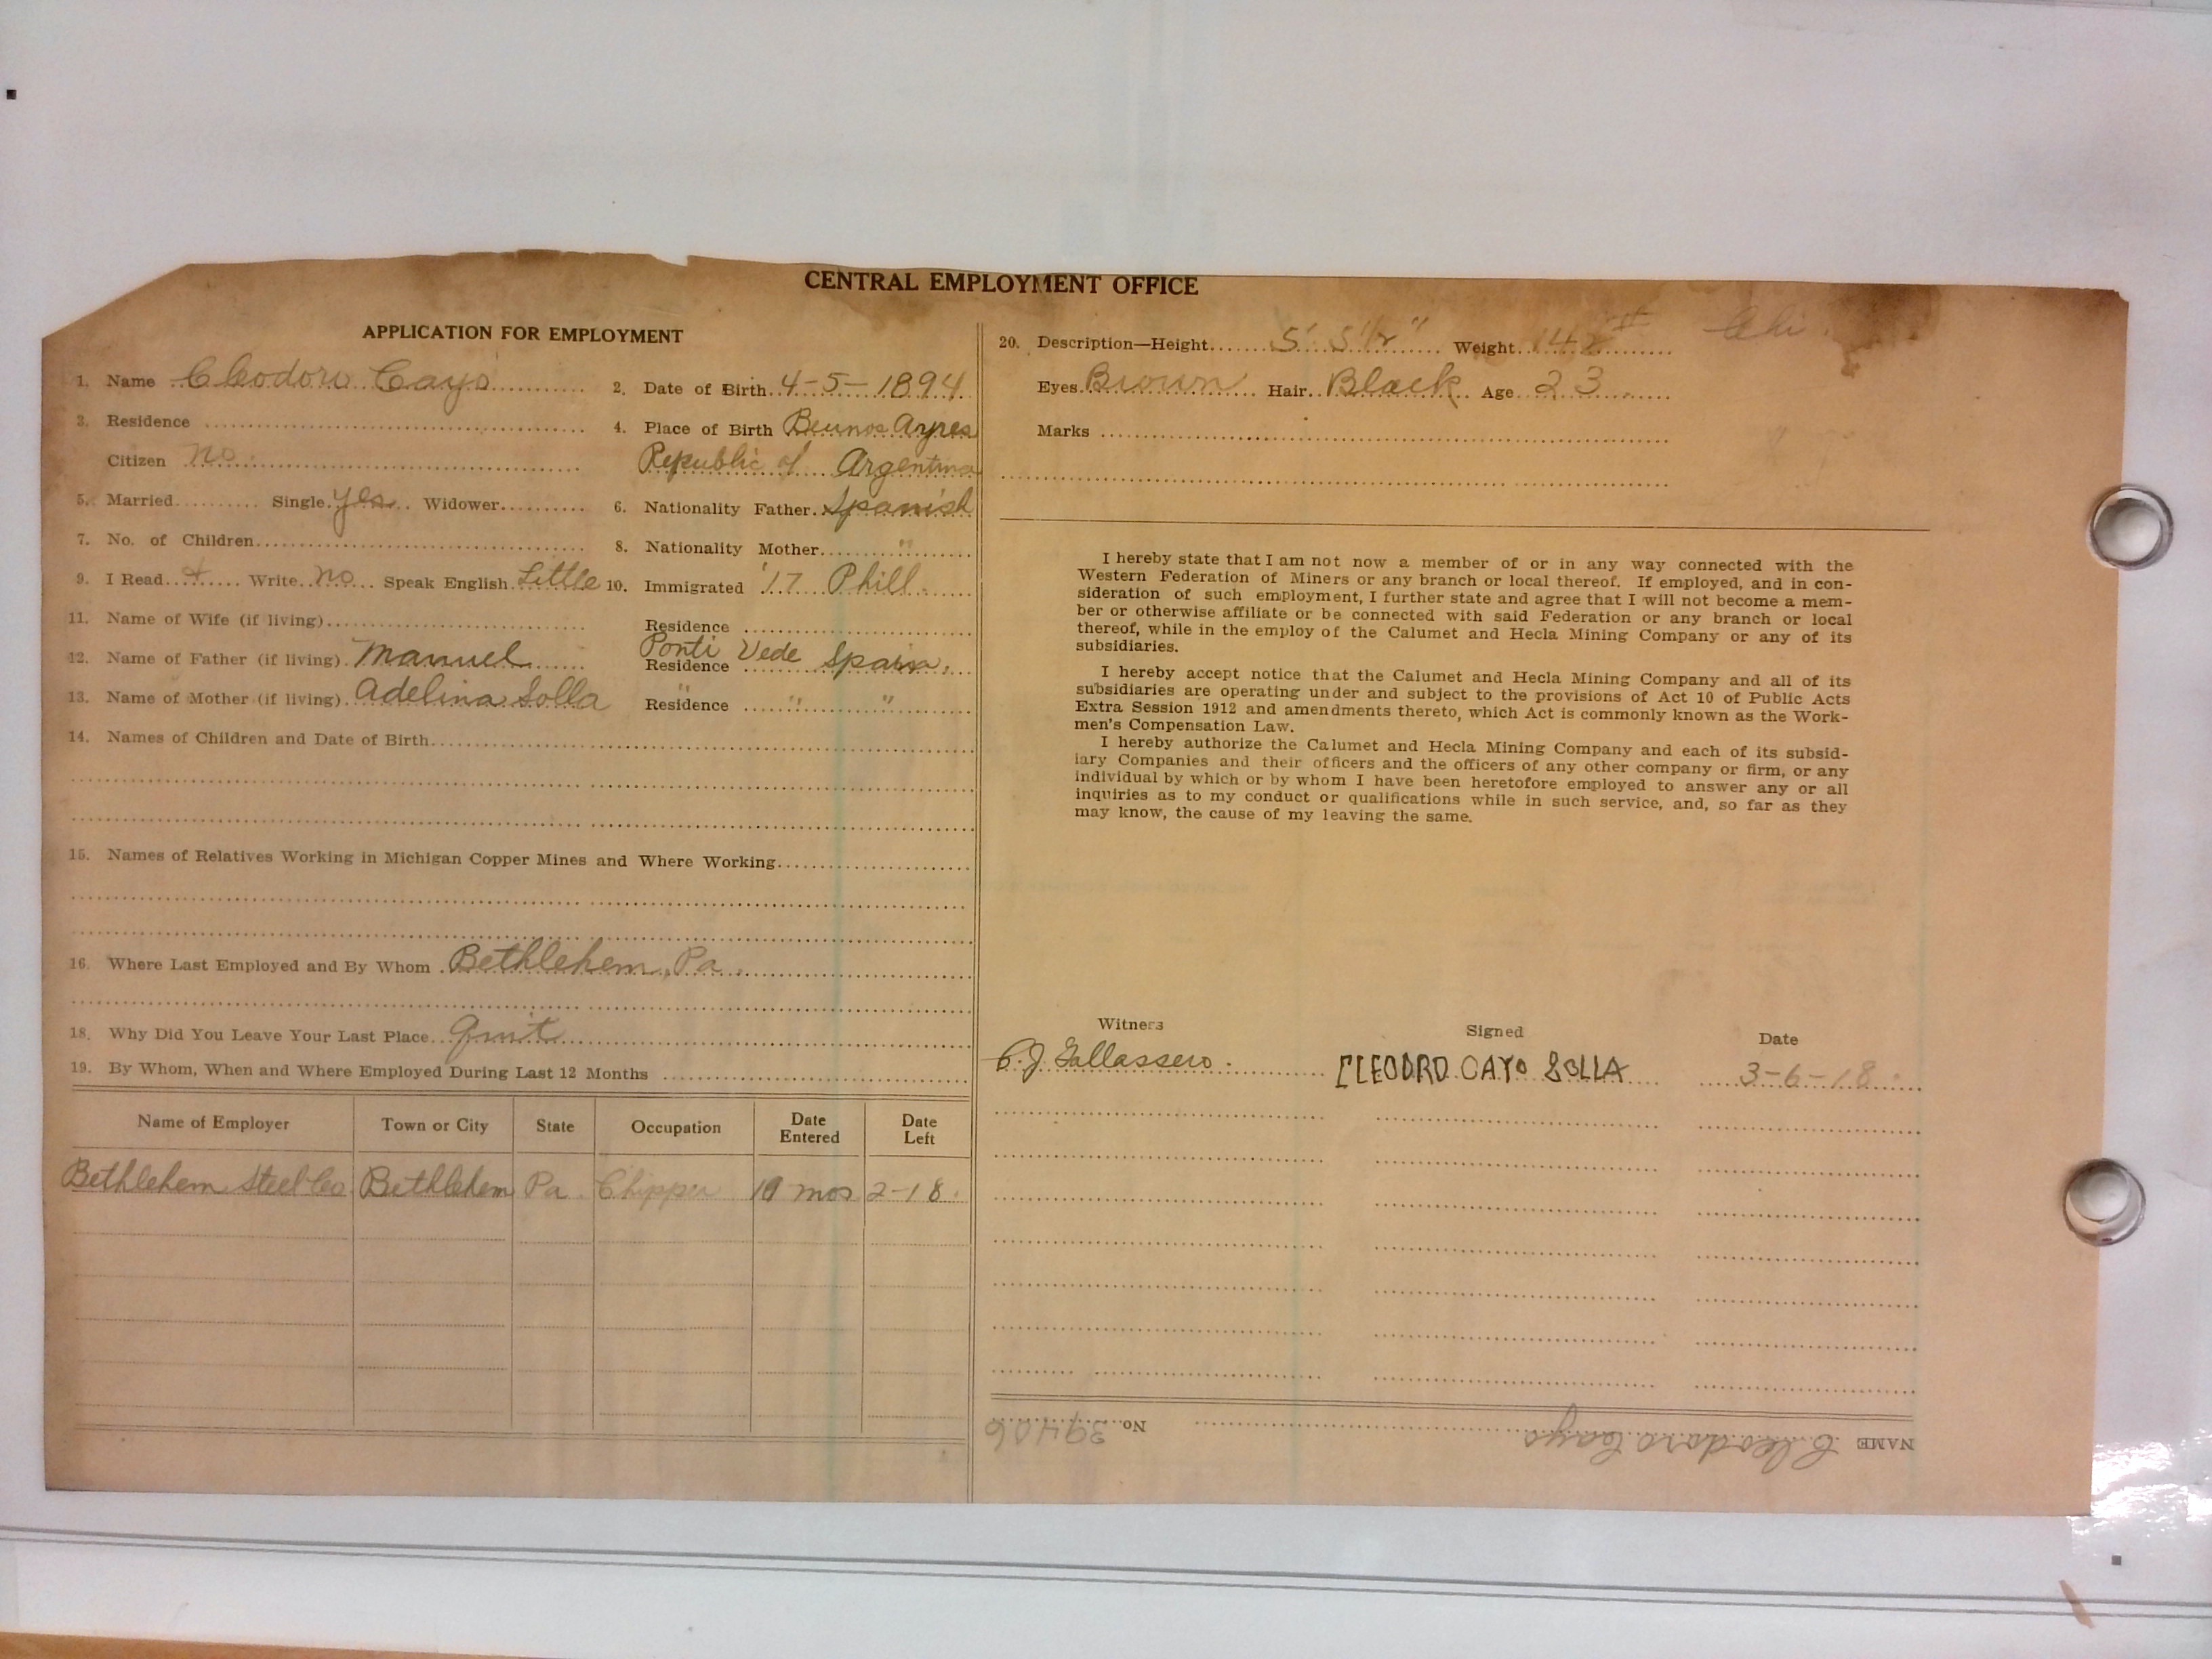 CENTRAL EMPLOYMENT OFFICE
APPLICATION FOR EMPLOYMENT
1. Name Cleodoro Cayo
2. Date of Birth 4-5-1894
3. Residence
4. Place of Birth Beunos Ayres
Citizen no
Republic of Argentina
5. Married Single yes Widower
6. Nationality Father Spanish
7. No. of Children
8. Nationality Mother "
9. I Read & Write no Speak English Little
10. Immigrated '17 Phill.
11. Name of Wife (if living)
Residence
12. Name of Father (if living) Manuel
Residence Ponti Vede Spain.
13. Name of Mother (if living) Adelina Solla
Residence " " "
14. Names of Children and Date of Birth
15. Names of Relatives Working in Michigan Copper Mines and Where Working
16. Where Last Employed and By Whom Bethlehem, Pa.
18. Why Did You Leave Your Last Place Quit
19. By Whom, When and Where Employed During Last 12 Months
Name of Employer Town or City State Occupation Date Entered Date Left
Bethlehem Steel Co Bethlehem Pa. Chipper 10 mos 2-18.
20. Description—Height 5' 5 1/2" Weight
Eyes Brown Hair Black Age 23
Marks
I hereby state that I am not now a member of or in any way connected with the
Western Federation of Miners or any branch or local thereof. If employed, and in con-
sideration of such employment, I further state and agree that I will not become a mem-
ber or otherwise affiliate or be connected with said Federation or any branch or local
thereof, while in the employ of the Calumet and Hecla Mining Company or any of its
subsidiaries.
I hereby accept notice that the Calumet and Hecla Mining Company and all of its
subsidiaries are operating under and subject to the provisions of Act 10 of Public Acts
Extra Session 1912 and amendments thereto, which Act is commonly known as the Work-
men's Compensation Law.
I hereby authorize the Calumet and Hecla Mining Company and each of its subsid-
iary Companies and their officers and the officers of any other company or firm, or any
individual by which or by whom I have been heretofore employed to answer any or all
inquiries as to my conduct or qualifications while in such service, and, so far as they
may know, the cause of my leaving the same.
Witness Signed Date
CLEODRO CAYO SOLLA 3-6-18
NAME Cleodoro Cayo No. 39406